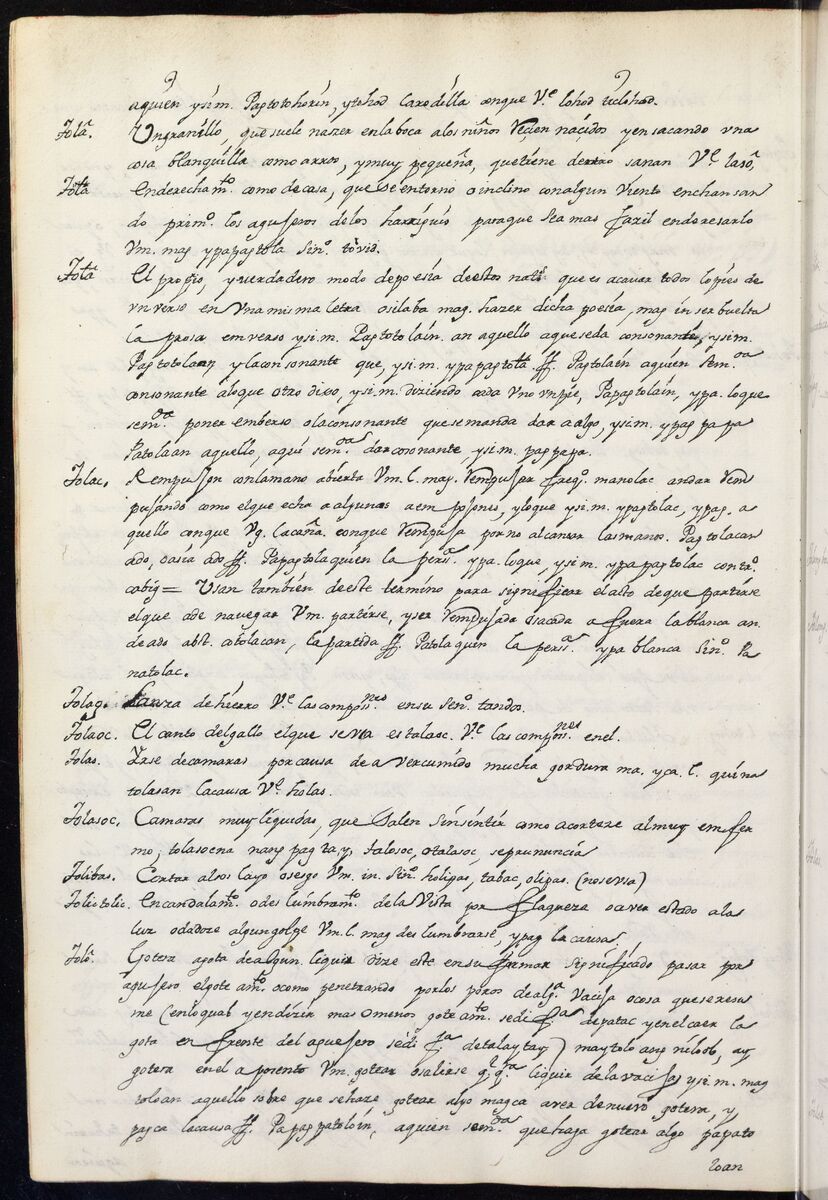 aquien ysi.m. Pagtotohorin, ytohod Carodilla conque V.e lohod
Tola. Ungranillo, que suele naszer enlaboca alos niños Reçien naçidos yensacando vna
cosa blanquilla como arros, ymuy pequeña, quetiene dentro sanan V.e
Tola Enderechám.to como decasa, que se entorno o inclino conalgun viento enchansan
do prim.o los aguseros delos harriguis paraque sea mas fazil enderesarlo
Vm. mag ypapagtola Sin.o tovid.
Tola El proprio, yverdadero modo depoesia deestos nat.s que es acavar todos lospies de
vnverso en vnamisma letra osilaba mag. hazer dicha poesia, mag in ser buelta
la prosa enverso ysi.m. Pagtotolain. an aquello aqueseda consonante, ysi.m.
Pagtotolaan ylaconsonante que, ysi.m. ypapagtola ff. Pagtolain aquien sem.da
consonante aloque otro dixo, ysi.m. diziendo cada vno vnpie, Papagtolain, ypa. loque
sem.da poner enberso olaconsonante quesemanda dar a algo, ysi.m. ypag pa pa
Patolaan aquello, aqui sem.da darconsonante, ysi.m. pag papa.
Tolac. Rempuson conlamano abierta Vm. l. mag. Rempusar freq.o manolac andar Rem
pusando como elque echa aalgunos aemposones, yloque ysi.m. ypagtolac, ypag. a
quello conque Vg. lacaña conque Rempusa porno alcanzar lasmanos. Pagtolacan
ado, oasia ado ff. Papagtolaquien la pers.a ypa. loque, ysi.m. ypapagtolac contr.o
cabig = Usan tambien deeste termino para significar elacto deque partirse
elque ade navegar Vm. partirse, yser Rempusada osacada afuera labanca an.
deado abst. catolacan, lapartida ff. Patolaquin la pers.a ypa blanca Sin.o Pa
natolac.
Tolag. Lanza de hierro V.e lascompos.nes ensu Sen.o tandos.
Tolaoc. El canto delgallo elque seusa es talaoc. V.e las compos.nes enel.
Tolas. Irse decamaras porcausa deavercumido mucha gordura ma, yca. l. quina
tolasan lacausa V.e holas.
Tolasoc. Camaras muyliquidas, que salen sinsintir como acorteze almuy enfer
mo, tolasocna nang pag tay, talosoc, otalasoc, sepronuncia
Tolibas. Cortar alsoslayo osesgo Vm. in. Sin.o holigas, tabac, oligas. (noseusa)
Tolictolic. Encandalam.to odeslumbram.to dela vista por flaqueza oaver estado ala
luz odadole algungolpe Vm. l. mag deslumbrarse, ypag lacausa.
Tolo. Gotera agota dealgun liquir dize este ensu formar significado pasar por
agusero elgoteam.to ocomo penetrando porlos poros dealg.a vacija ocosa queseresu
me (enloqual yendizir mas omenos goteam.to sedif.a depatac yenelcaer la
gota en frente del agusero sedif.a detalaytay) maytolo ang niloob, ay
gotera enel aposento Vm. gotear osalirse qlq.ra liquir delavacija ysi.m. mag
toloan aquello sobre que sehaze gotear algo magca aver denuevo gotera, y
pagca lacausa ff. Papagpatoloin, aquien sem.da quehaga gotear algo papato
loan